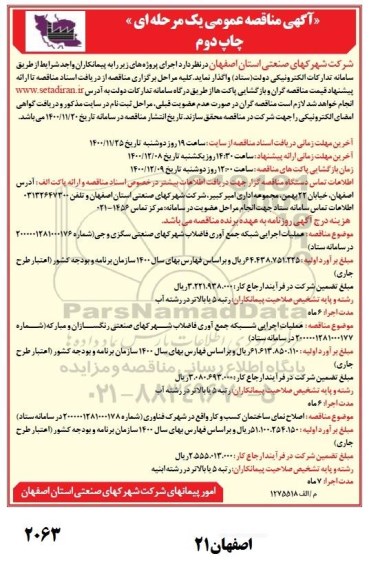 «آگهی مناقصه عمومی یک مرحله ای»
چاپ دوم
شرکت شهرکهای صنعتی استان اصفهان در نظر دارد اجرای پروژه های زیر را به پیمانکاران واجد شرایط از طریق
سامانه تدارکات الکترونیکی دولت (ستاد) واگذار نماید. کلیه مراحل برگزاری مناقصه از دریافت اسناد مناقصه تا ارائه
پیشنهاد قیمت مناقصه گران و بازگشایی پاکت ها از طریق درگاه سامانه تدارکات دولت به آدرس www.setadiran.ir
انجام خواهد شد. لازم است مناقصه گران در صورت عدم عضویت قبلی، مراحل ثبت نام در سایت مذکور و دریافت گواهی
امضای الکترونیکی را جهت شرکت در مناقصه محقق سازند. تاریخ انتشار مناقصه در سامانه تاریخ ۱۴۰۰/۱۱/۲۰ می باشد.
آخرین مهلت زمانی دریافت اسناد مناقصه از سایت: ساعت ۱۹ روز دوشنبه تاریخ ۱۴۰۰/۱۱/۲۵
آخرین مهلت زمانی ارائه پیشنهاد: ساعت ۱۴:۳۰ روز یکشنبه تاریخ ۱۴۰۰/۱۲/۰۸
زمان بازگشایی پاکت های مناقصه: ساعت ۱۲:۰۰ روز دوشنبه تاریخ ۱۴۰۰/۱۲/۰۹
اطلاعات تماس دستگاه مناقصه گزار جهت دریافت اطلاعات بیشتر در خصوص اسناد مناقصه و ارائه پاکت الف: آدرس
اصفهان، خیابان ۲۲ بهمن، مجموعه اداری امیر کبیر، شرکت شهرکهای صنعتی استان اصفهان و تلفن ۰۳۱۳۲۶۴۷۳۰۰
اطلاعات تماس سامانه ستاد جهت انجام مراحل عضویت در سامانه: مرکز تماس ۱۴۵۶-۰۲۱
هزینه درج آگهی روزنامه به عهده برنده مناقصه می باشد.
موضوع مناقصه: عملیات اجرایی شبکه جمع آوری فاضلاب شهرکهای صنعتی سگزی و جی (شماره ۲۰۰۰۰۰۱۲۸۱۰۰۰۱۷۶
در سامانه ستاد)
مبلغ برآورد اولیه: ۶۴.۴۳۸.۷۵۱.۲۳۵ ریال و بر اساس فهارس بهای سال ۱۴۰۰ سازمان برنامه و بودجه کشور (اعتبار طرح
جاری)
مبلغ تضمین شرکت در فرآیند ارجاع کار: ۳.۲۲۱.۹۳۸.۰۰۰ ریال
رشته و پایه تشخیص صلاحیت پیمانکاران: رتبه ۵ یا بالاتر در رشته آب
مدت اجرا: ۶ ماه
موضوع مناقصه: عملیات اجرایی شبکه جمع آوری فاضلاب شهرکهای صنعتی رنگسازان و مبارکه (شماره
۲۰۰۰۰۰۱۲۸۱۰۰۰۱۷۷ در سامانه ستاد)
مبلغ برآورد اولیه: ۶۱.۶۱۳.۸۵۰.۱۱۰ ریال و بر اساس فهارس بهای سال ۱۴۰۰ سازمان برنامه و بودجه کشور (اعتبار طرح
جاری)
مبلغ تضمین شرکت در فرآیند ارجاع کار: ۳.۰۸۰.۶۹۳.۰۰۰ ریال
رشته و پایه تشخیص صلاحیت پیمانکاران: رتبه ۵ یا بالاتر در رشته آب
مدت اجرا: ۶ ماه
موضوع مناقصه: اصلاح نمای ساختمان کسب و کار واقع در شهرک فناوری (شماره ۲۰۰۰۰۰۱۲۸۱۰۰۰۱۷۸ در سامانه ستاد)
مبلغ برآورد اولیه: ۵۱.۱۰۰.۲۵۴.۱۵۰ ریال و بر اساس فهارس بهای سال ۱۴۰۰ سازمان برنامه و بودجه کشور (اعتبار طرح
جاری)
مبلغ تضمین شرکت در فرآیند ارجاع کار: ۲.۵۵۵.۰۱۳.۰۰۰ ریال
رشته و پایه تشخیص صلاحیت پیمانکاران: رتبه ۵ یا بالاتر در رشته ابنیه
مدت اجرا: ۷ ماه
م/الف: ۱۲۷۵۵۱۸
امور پیمانهای شرکت شهرکهای صنعتی استان اصفهان
۲۰۶۳
اصفهان۲۱